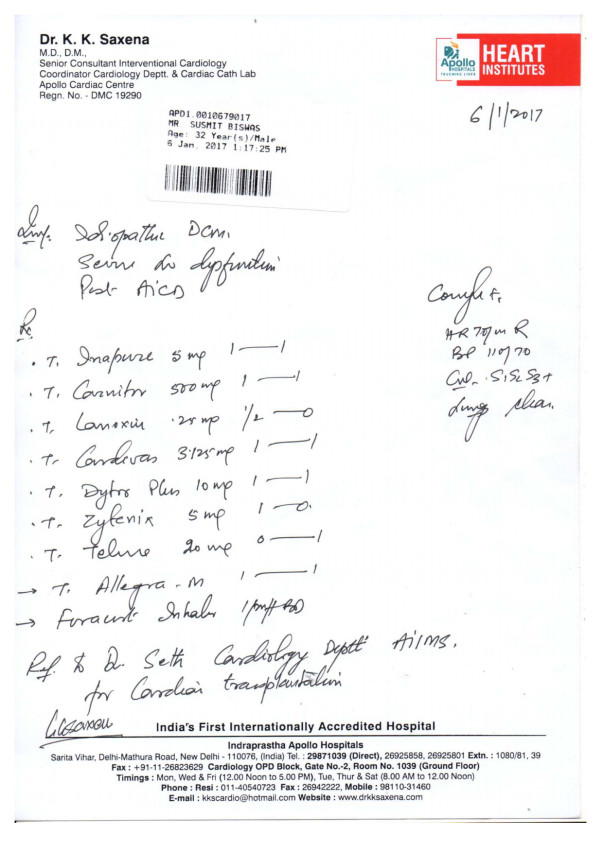 Dr. K. K. Saxena
M.D., D.M.,
Senior Consultant Interventional Cardiology
Coordinator Cardiology Deptt. & Cardiac Cath Lab
Apollo Cardiac Centre
Regn. No. - DMC 19290
Apollo
HOSPITALS
TOUCHING LIVES
HEART
INSTITUTES
6/1/2017
APD1.0010679017
MR SUSMIT BISWAS
Age: 32 Year(s)/Male
6 Jan, 2017 1:17:25 PM
Imp. Idiopathic DCM.
Severe LV dysfunction
Post AICD
Comf
HR 70/m R
BP 110/70
CVS S1S2 S3+
Lungs clear.
Rx
· T. Inapure 5 mg 1 — 1
· T. Carnitor 500 mg 1 — 1
· T. Lanoxin .25 mg 1/2 — 0
· T. Cardivas 3.125 mg 1 — 1
· T. Dytor Plus 10 mg 1 — 1
· T. 5 mg 1 — 0.
· T. Telma 20 mg 0 — 1
→ T. Allegra-M 1 — 1
→ Foracort Inhaler 1 puff BD
Ref to Dr. Seth Cardiology Deptt AIIMS.
for Cardiac transplantation
India's First Internationally Accredited Hospital
Indraprastha Apollo Hospitals
Sarita Vihar, Delhi-Mathura Road, New Delhi - 110076, (India) Tel. : 29871039 (Direct), 26925858, 26925801 Extn. : 1080/81, 39
Fax : +91-11-26823629 Cardiology OPD Block, Gate No.-2, Room No. 1039 (Ground Floor)
Timings : Mon, Wed & Fri (12.00 Noon to 5.00 PM), Tue, Thur & Sat (8.00 AM to 12.00 Noon)
Phone : Resi : 011-40540723 Fax : 26942222, Mobile : 98110-31460
E-mail : kkscardio@hotmail.com Website : www.drkksaxena.com